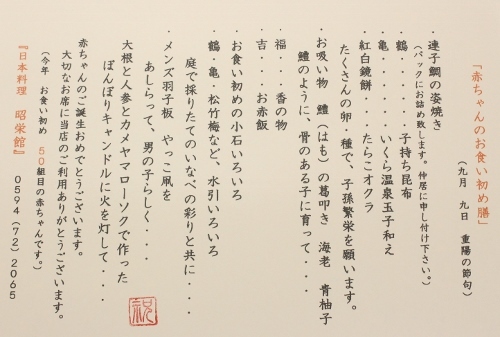 「赤ちゃんのお食い初め膳」
(九月　九日　重陽の節句)
・連子鯛の姿焼き
(パックにお詰め致します。仲居に申し付け下さい。)
・鶴・・・・・子持ち昆布
・亀・・・・・いくら温泉玉子和え
・紅白鏡餅・・・たらこオクラ
たくさんの卵・種で、子孫繁栄を願います。
・お吸い物　鱧(はも)の葛叩き　海老　青柚子
鱧のように、骨のある子に育って・・・・
・福・・・香の物
・吉・・・お赤飯
・お食い初めの小石いろいろ
・鶴・亀・松竹梅など、水引いろいろ
庭で採りたてのいなべの彩りと共に・・・・
・メンズ羽子板　やっこ凧を
あしらって、男の子らしく・・・・
・大根と人参とカメヤマローソクで作った
ぼんぼりキャンドルに火を灯して・・・・
赤ちゃんのご誕生おめでとうございます。
大切なお席に当店のご利用ありがとうございます。
(今年　お食い初め　50組目の赤ちゃんです。)
『日本料理　昭栄館』　0594(72)2065
祝